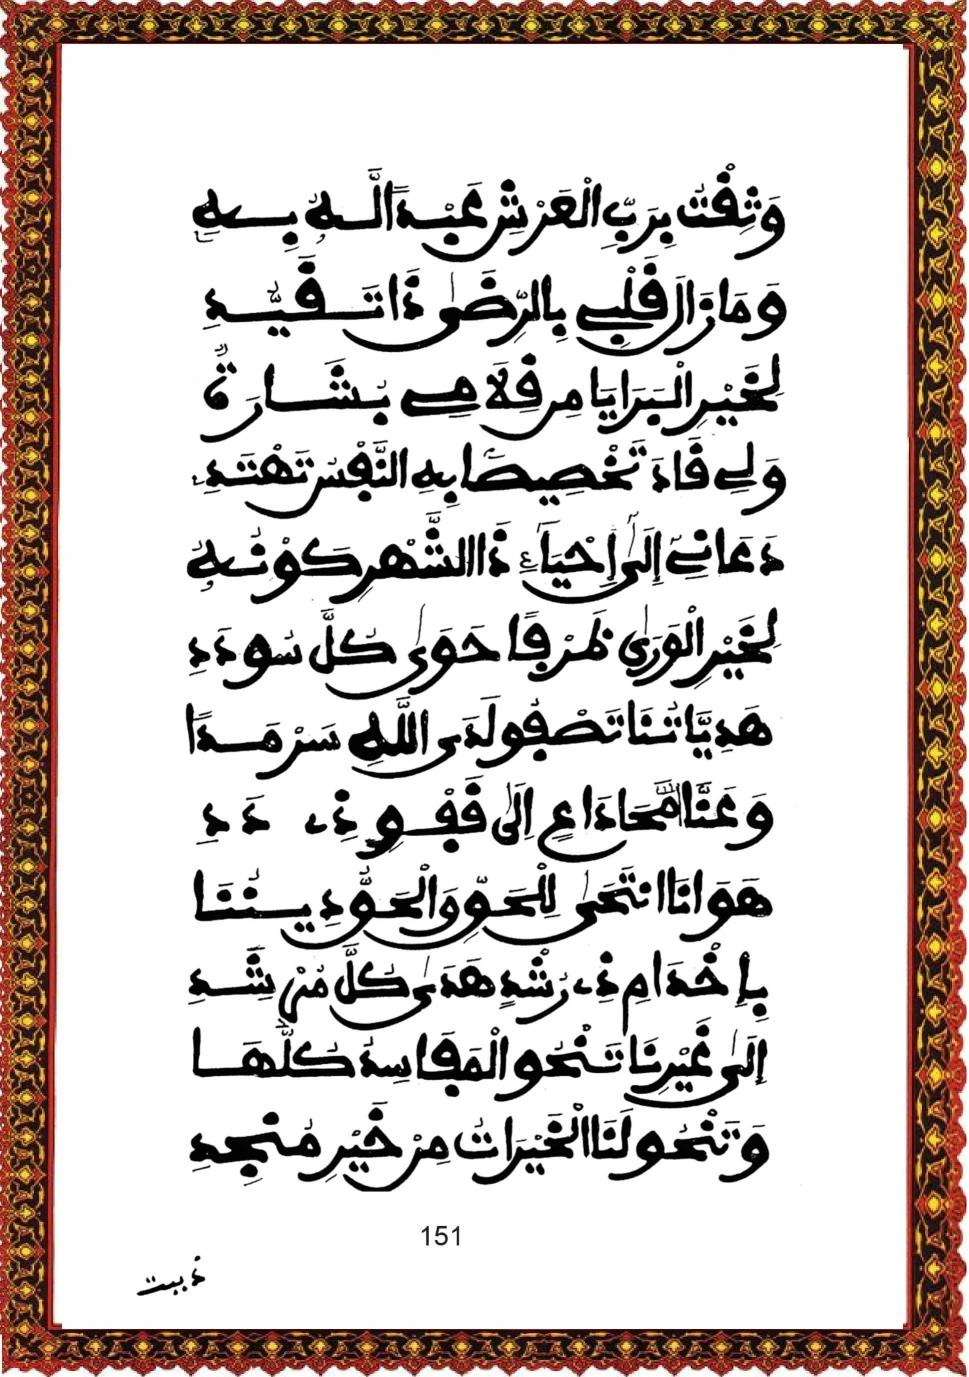 وَثِقْتُ بِرَبِّ الْعَرْشِ عَبْدًا لَّهُ بِهِ
وَمَا زَالَ قَلْبِي بِالرِّضَى ذَا تَقَيُّدِ
لِخَيْرِ الْبَرَايَا مِن فِلَامِي بِشَارَةٌ
وَلِي قَادَ تَخْصِيصًا بِهِ النَّفْسُ تَهْتَدِ
دَعَانِي إِلَى إِحْيَاءِ ذَا الشَّهْرِ كَوْنُهُ
لِخَيْرِ الْوَرَى ظَرْفًا حَوَى كُلَّ سُودَدِ
هَدِيَّاتُنَا تَصْفُو لَدَى اللَّهِ سَرْمَدًا
وَعَنَّا امَّحَا دَاعٍ إِلَى فَقْوِ ذِي دَدِ
هَوَانَا انْتَحَى لِلْحَقِّ وَالْحَقُّ دِينُنَا
بِإِخْدَامِ ذِي رُشْدٍ هَدَى كُلَّ مُرْشَدِ
إِلَى غَيْرِنَا تَنْحُو الْمَفَاسِدُ كُلُّهَا
وَتَنْحُو لَنَا الْخَيْرَاتُ مِنْ خَيْرِ مُنْجِدِ
151